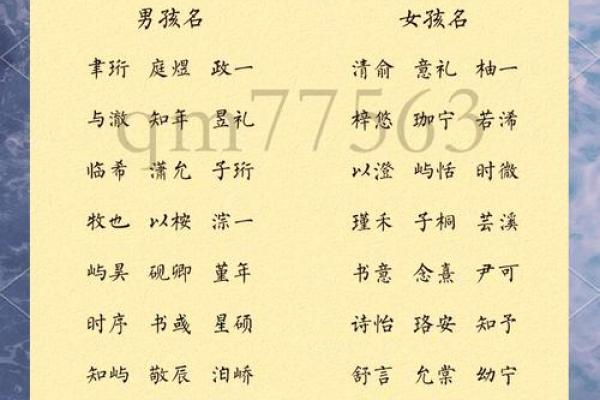 男孩名 女孩名
聿珩 庭煜 政一 清俞 意礼 柚一
与澈 知年 昱礼 梓悠 珈宁 若浠
临希 潇允 子珩 以澄 屿恬 时微
牧也 以桉 淙一 瑾禾 子桐 芸溪
屿昊 砚卿 堇年 书意 念熹 尹可
时序 书彧 星硕 诗怡 珞安 知予
知屿 敬辰 泊峤 舒言 允棠 幼宁
qm77563